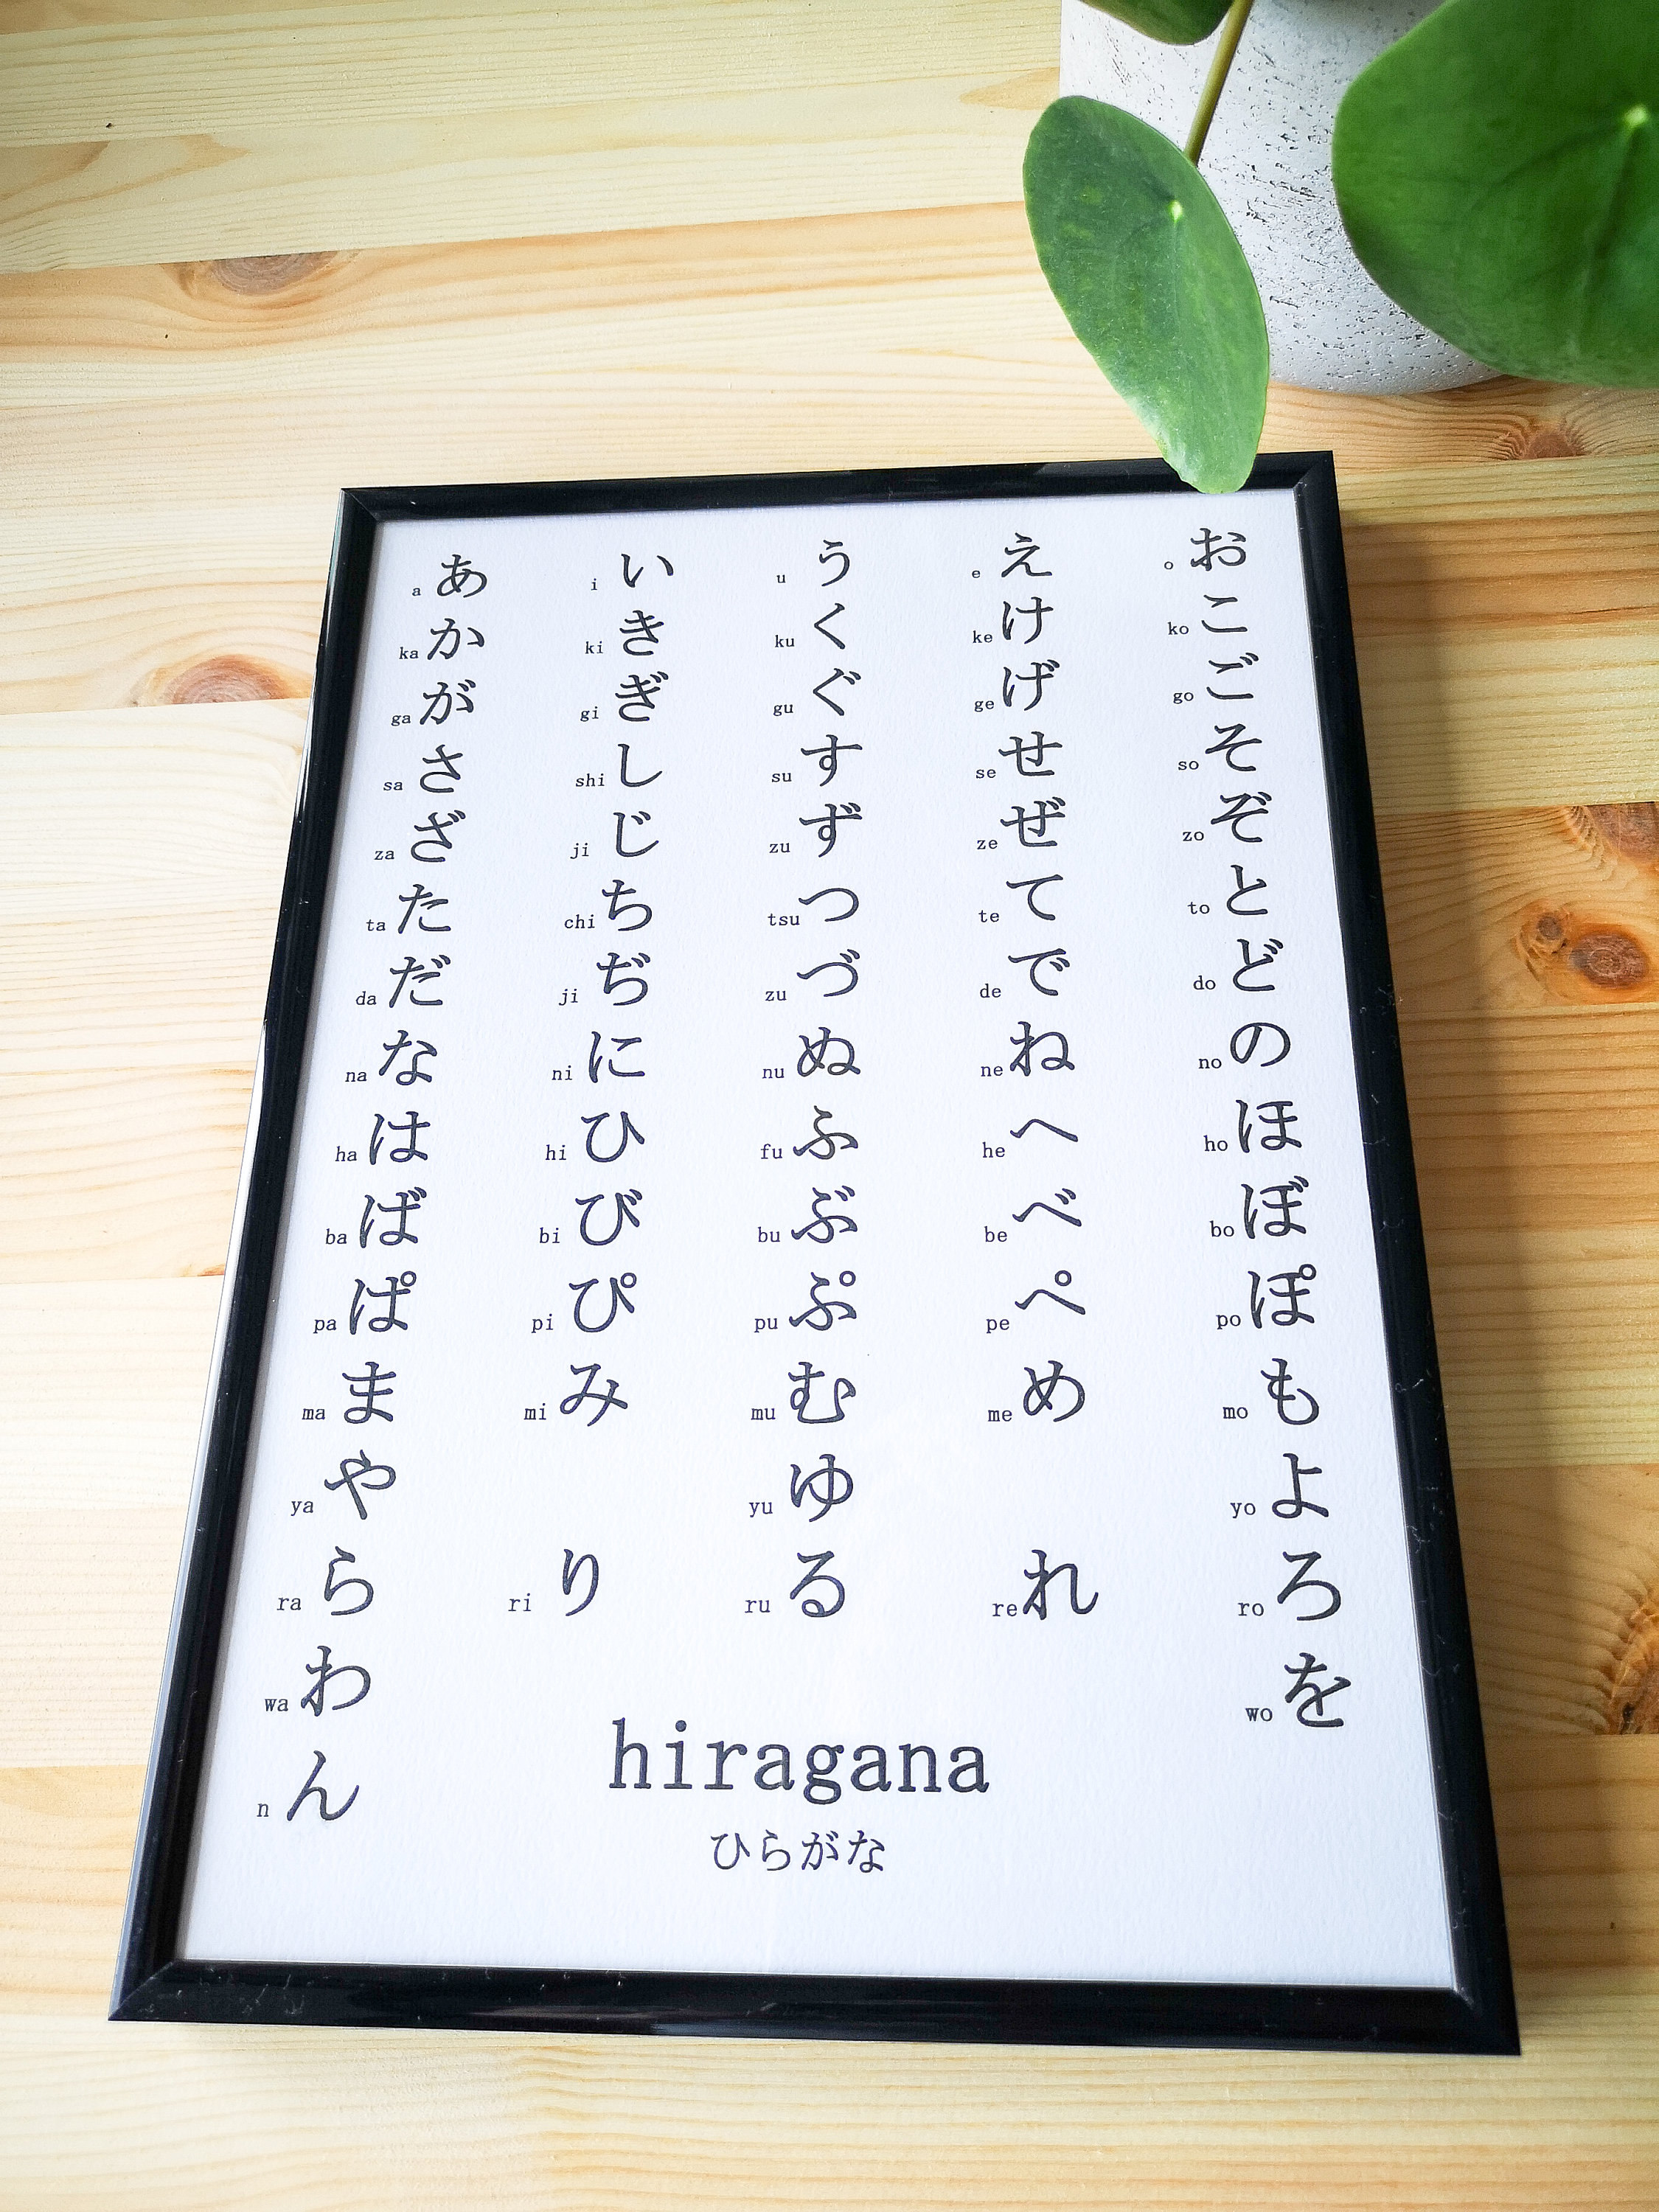 a あ i い u う e え o お
ka か ki き ku く ke け ko こ
ga が gi ぎ gu ぐ ge げ go ご
sa さ shi し su す se せ so そ
za ざ ji じ zu ず ze ぜ zo ぞ
ta た chi ち tsu つ te て to と
da だ ji ぢ zu づ de で do ど
na な ni に nu ぬ ne ね no の
ha は hi ひ fu ふ he へ ho ほ
ba ば bi び bu ぶ be べ bo ぼ
pa ぱ pi ぴ pu ぷ pe ぺ po ぽ
ma ま mi み mu む me め mo も
ya や yu ゆ yo よ
ra ら ri り ru る re れ ro ろ
wa わ wo を
n ん
hiragana
ひらがな